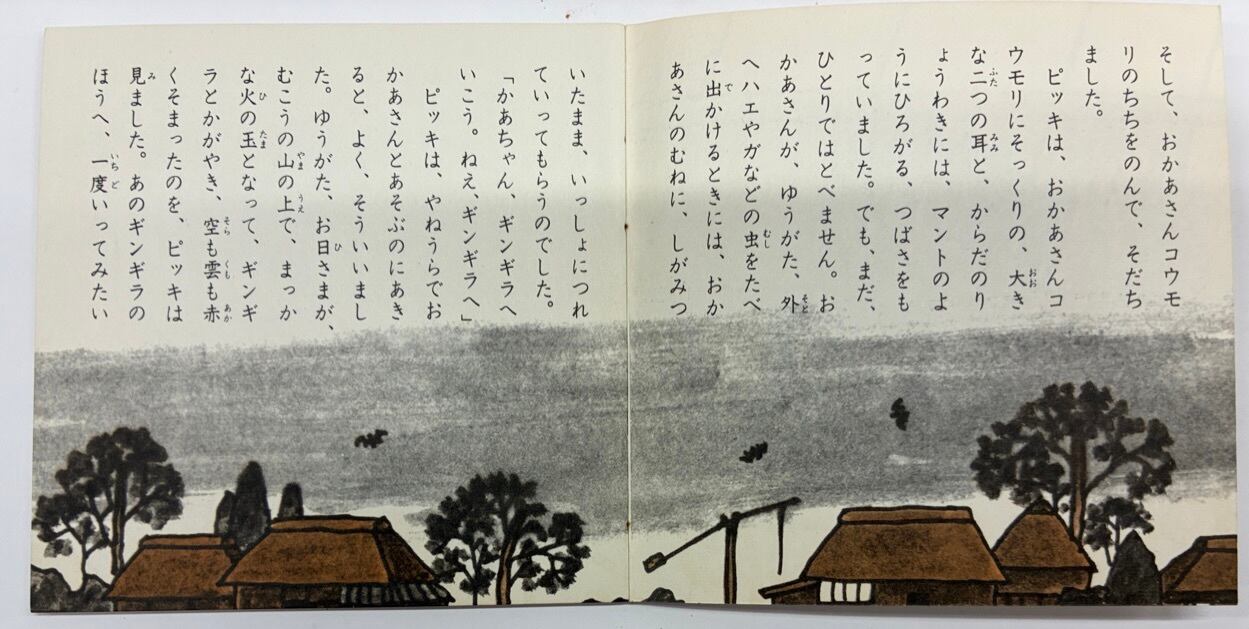 そして、おかあさんコウモ
リのちちをのんで、そだち
ました。
ピッキは、おかあさんコ
ウモリにそっくりの、大き
な二つの耳と、からだのり
ょうわきには、マントのよ
うにひろがる、つばさをも
っていました。でも、まだ、
ひとりではとべません。お
かあさんが、ゆうがた、外
へハエやガなどの虫をたべ
に出かけるときには、おか
あさんのむねに、しがみつ
いたまま、いっしょにつれ
ていってもらうのでした。
「かあちゃん、ギンギラへ
いこう。ねえ、ギンギラへ」
ピッキは、やねうらでお
かあさんとあそぶのにあき
ると、よく、そういいまし
た。ゆうがた、お日さまが、
むこうの山の上で、まっか
な火の玉となって、ギンギ
ラとかがやき、空も雲も赤
くそまったのを、ピッキは
見ました。あのギンギラの
ほうへ、一度いってみたい